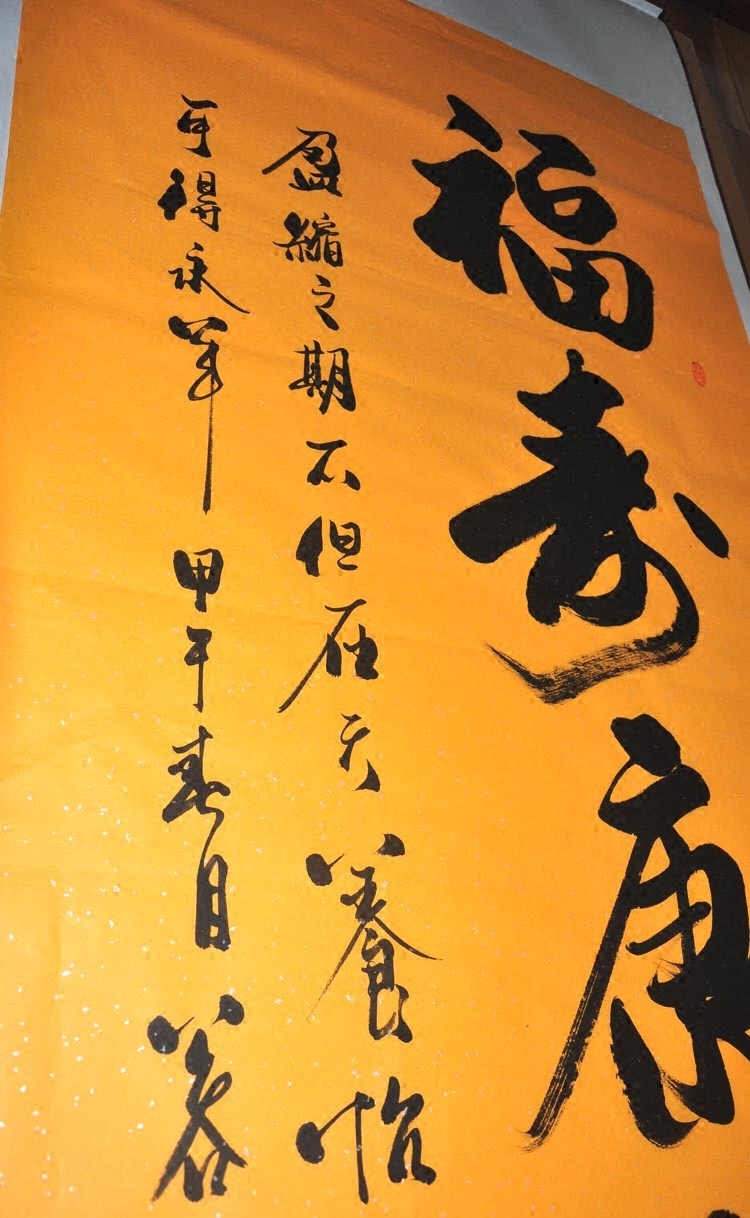 福寿康
盈縮之期不但在天養怡
可得永年 甲午春月